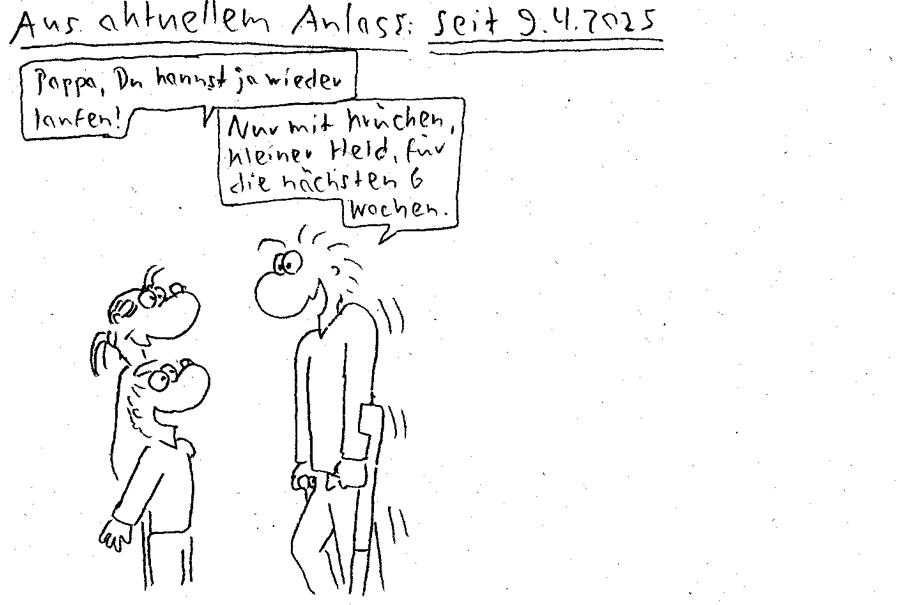 Aus aktuellem Anlass: seit 9.4.2025
Pappa, Du kannst ja wieder
laufen!
Nur mit krücken,
kleiner Held, für
die nächsten 6
wochen.